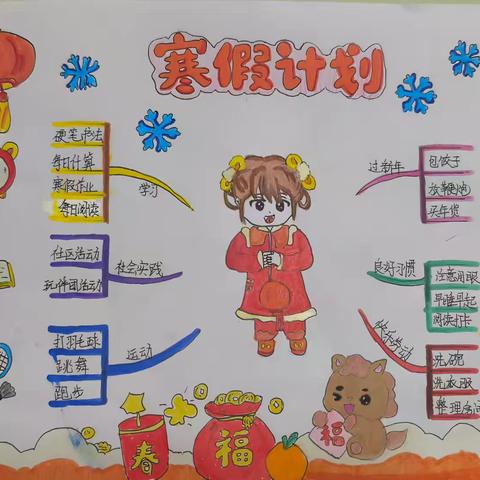 寒假计划
硬笔书法
每日计算
寒假作业
每日阅读
学习
社区活动
玩伴团活动
社会实践
打羽毛球
跳舞
跑步
运动
过新年
包饺子
放鞭炮
买年货
良好习惯
注意用眼
早睡早起
阅读打卡
快乐劳动
洗碗
洗衣服
整理房间
春
福
福